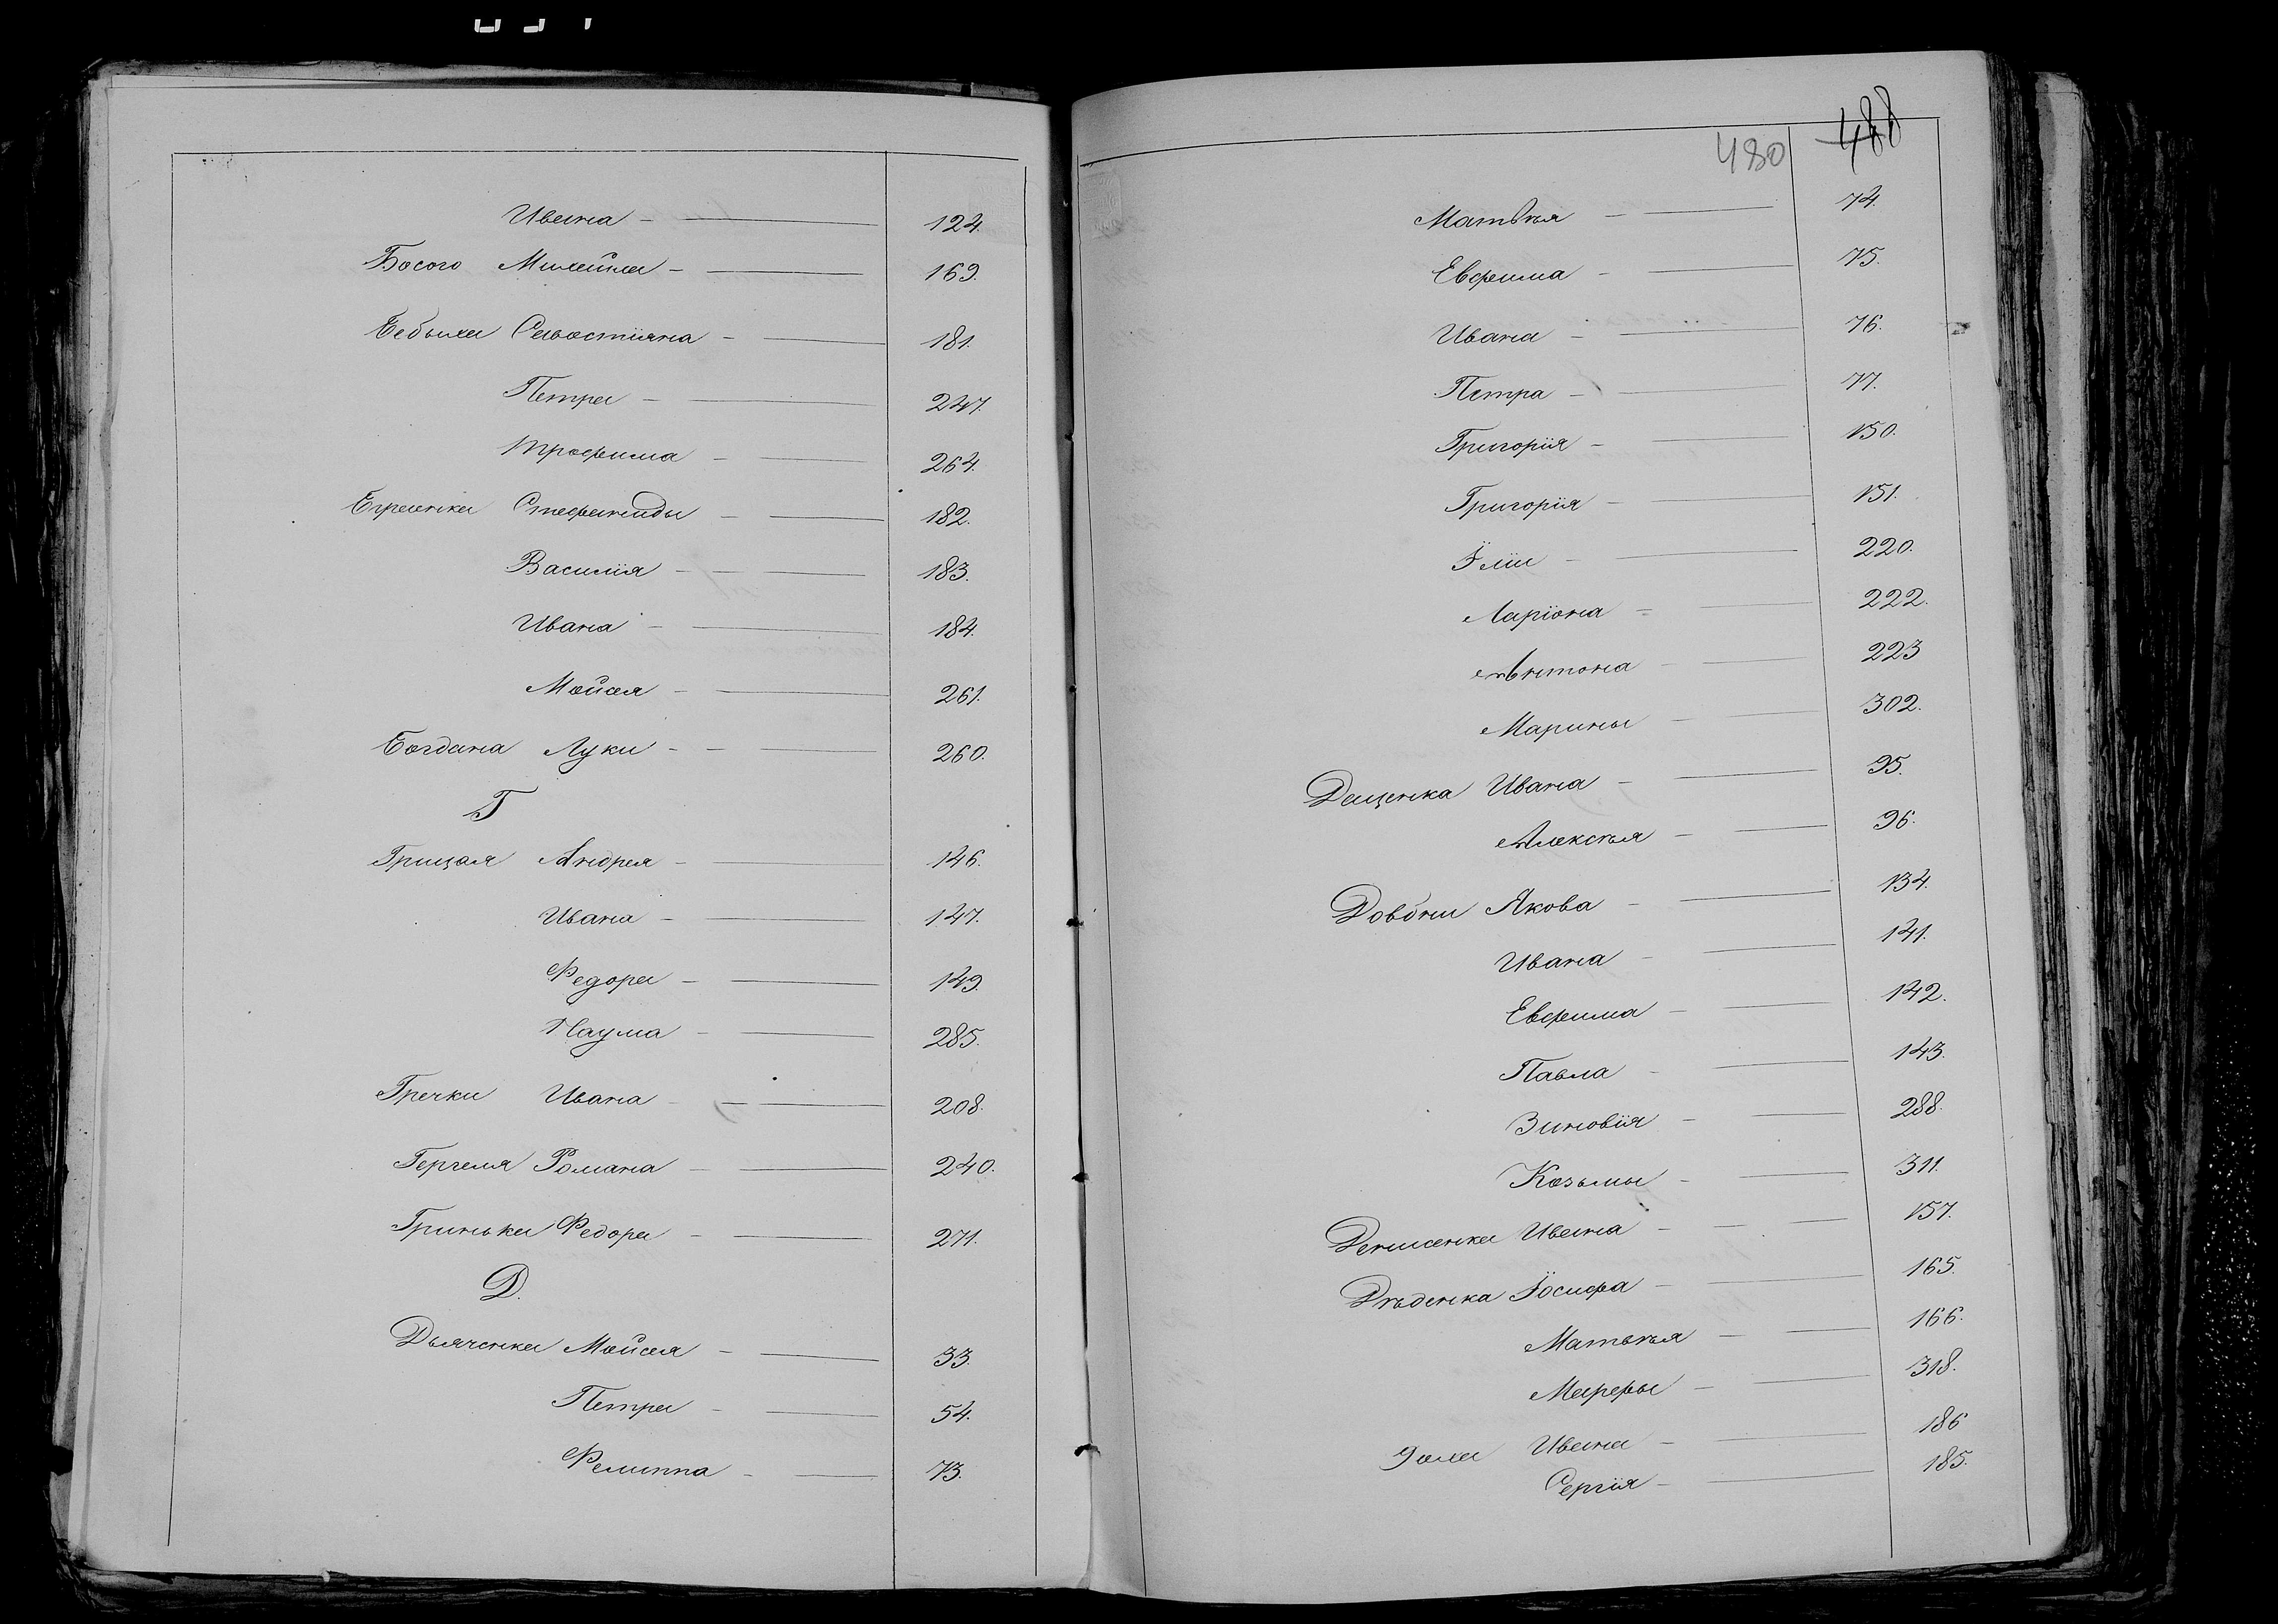 Ивана - 124.
Босого Михайла - 169.
Бебыха Севостіяна - 181.
Петра - 247.
Трофима - 264.
Стефаниды - 182.
Василія - 183.
Ивана - 184.
Мойсея - 261.
Богдана Луки - 260.
Г
Грицая Андрея - 146.
Ивана - 147.
Федора - 149.
Наума - 285.
Гречки Ивана - 208.
Гергеля Романа - 240.
Гринька Федора - 271.
Д.
Дьяченка Мойсея - 33.
Петра - 54.
Филиппа - 73.
480 488
Матвѣя - 74.
Евфима - 75.
Ивана - 76.
Петра - 77.
Григорія - 150.
Григорія - 151.
Іліи - 220.
Ларіона - 222.
Антона - 223
Марины - 302.
Деценка Ивана - 95.
Алексѣя - 96.
Довбни Якова - 134.
Ивана - 141.
Евфима - 142.
Павла - 143.
Зиновія - 288.
Козьмы - 311.
Денисенка Ивана - 157.
Дѣденка Іосифа - 165.
Матвѣя - 166.
Марфы - 318.
Ивана - 186
Сергія - 185.